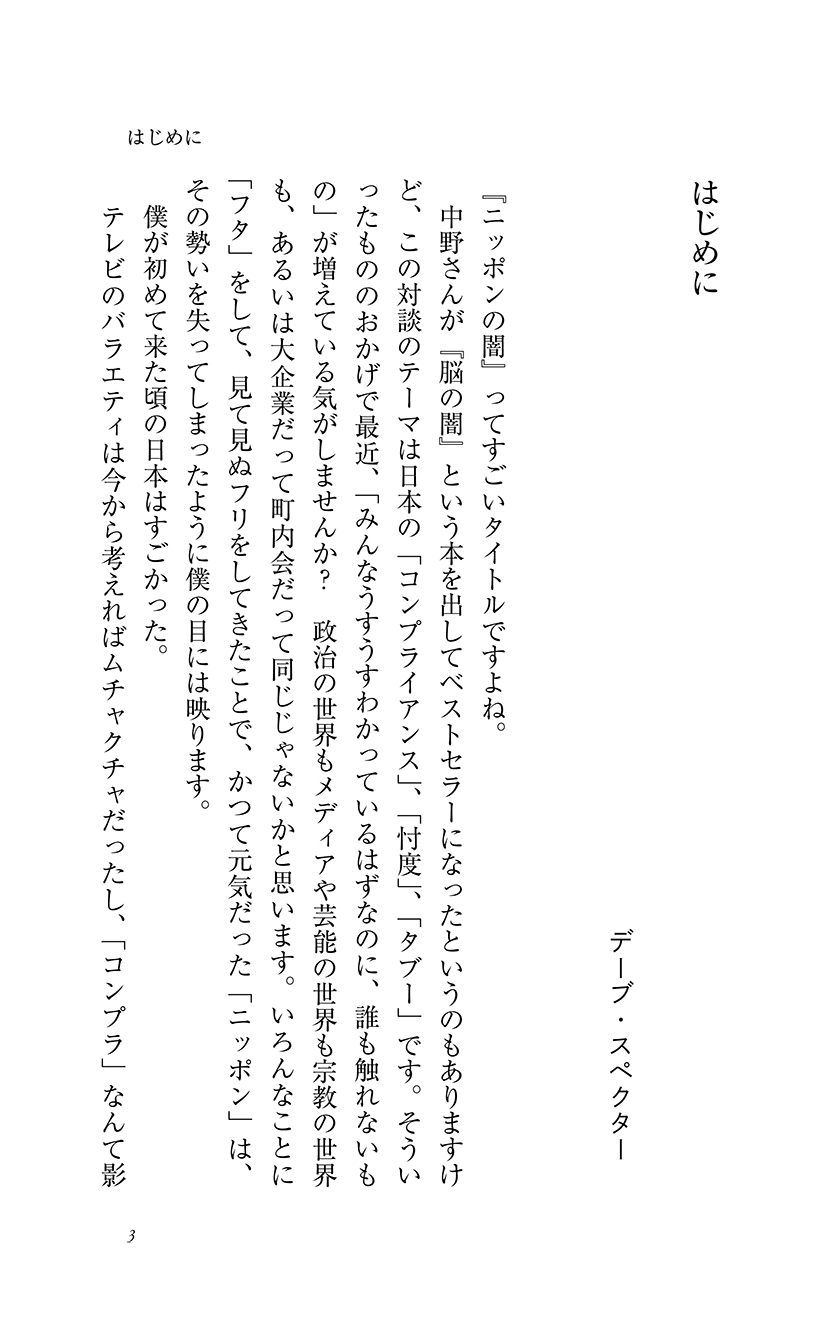 はじめに
はじめに
デーブ・スペクター
『ニッポンの闇』ってすごいタイトルですよね。
中野さんが『脳の闇』という本を出してベストセラーになったというのもありますけ
ど、この対談のテーマは日本の「コンプライアンス」、「忖度」、「タブー」です。そうい
ったもののおかげで最近、「みんなうすうすわかっているはずなのに、誰も触れないも
の」が増えている気がしませんか？　政治の世界もメディアや芸能の世界も宗教の世界
も、あるいは大企業だって町内会だって同じじゃないかと思います。いろんなことに
「フタ」をして、見て見ぬフリをしてきたことで、かつて元気だった「ニッポン」は、
その勢いを失ってしまったように僕の目には映ります。
僕が初めて来た頃の日本はすごかった。
テレビのバラエティは今から考えればムチャクチャだったし、「コンプラ」なんて影
3